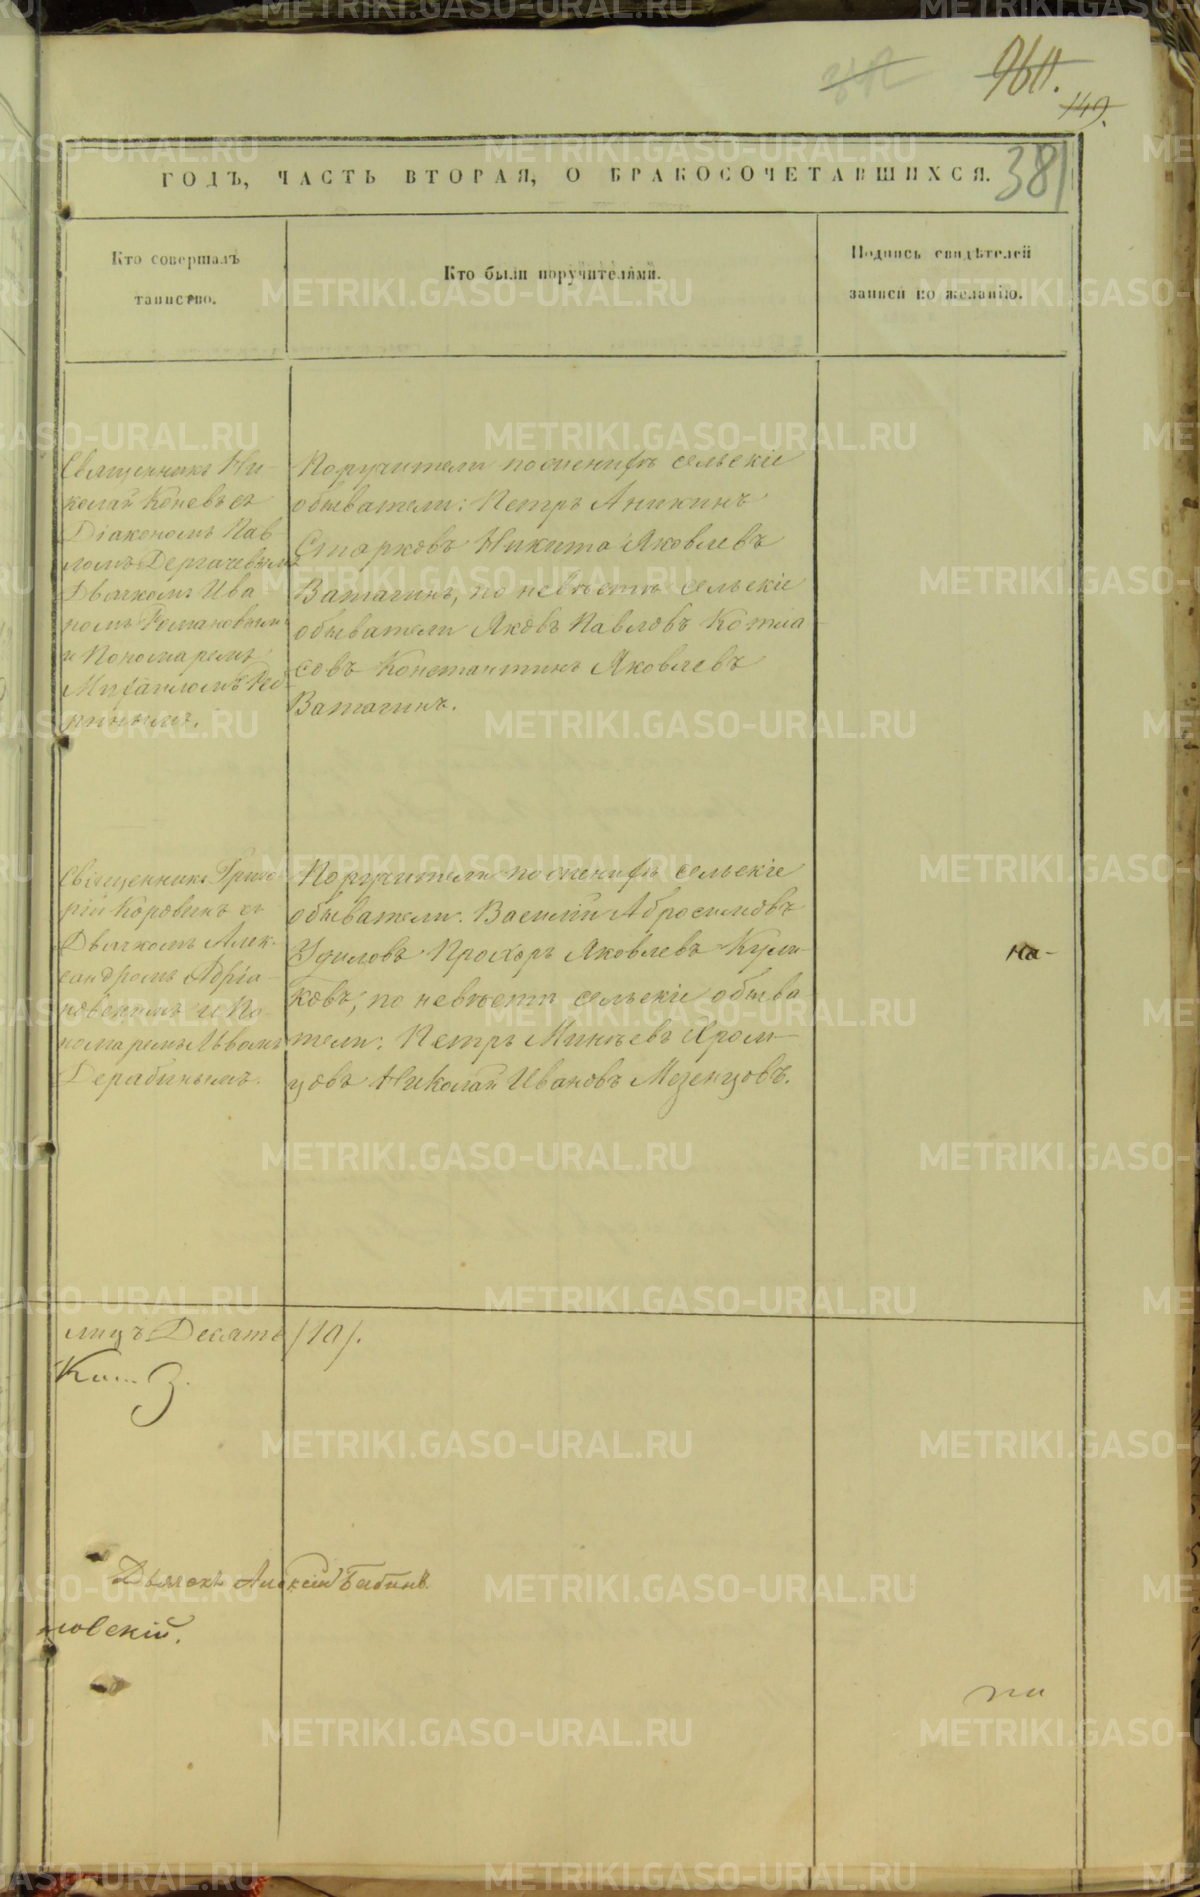 960.
149.
381
ГОДЪ, ЧАСТЬ ВТОРАЯ, О БРАКОСОЧЕТАВШИХСЯ.
Кто совершалъ
таинство.
Кто были поручителями.
Подпись свидѣтелей
записей по желанію.
Священникъ Ни-
колай Коневъ съ
Діакономъ Пав
ломъ Дергачевымъ
Дьячкомъ Ива
номъ Романовымъ
и Пономаремъ
Михаиломъ
Поручители по женихѣ сельскіе
обыватели: Петръ Аникинъ
Старковъ Никита Яковлевъ
Ватагинъ, по невѣстѣ сельскіе
обыватели Яковъ Павловъ Котла
совъ Константинъ Яковлевъ
Ватагинъ.
Священникъ Григо
рій Коровинъ съ
Дьячкомъ Алек-
сандромъ Адріа-
новскимъ и По-
номаремъ Львомъ
Дерябинымъ.
Поручители по женихѣ сельскіе
обыватели: Василій Абросимовъ
Удиловъ Прохоръ Яковлевъ Кули-
ковъ, по невѣстѣ сельскіе обыва
тели: Петръ Минѣевъ Яром-
цовъ Николай Ивановъ Мезенцовъ.
на-
лицъ Десять /10/.
Дьячекъ Алексій Бабинъ.
ловскій.
METRIKI.GASO-URAL.RU